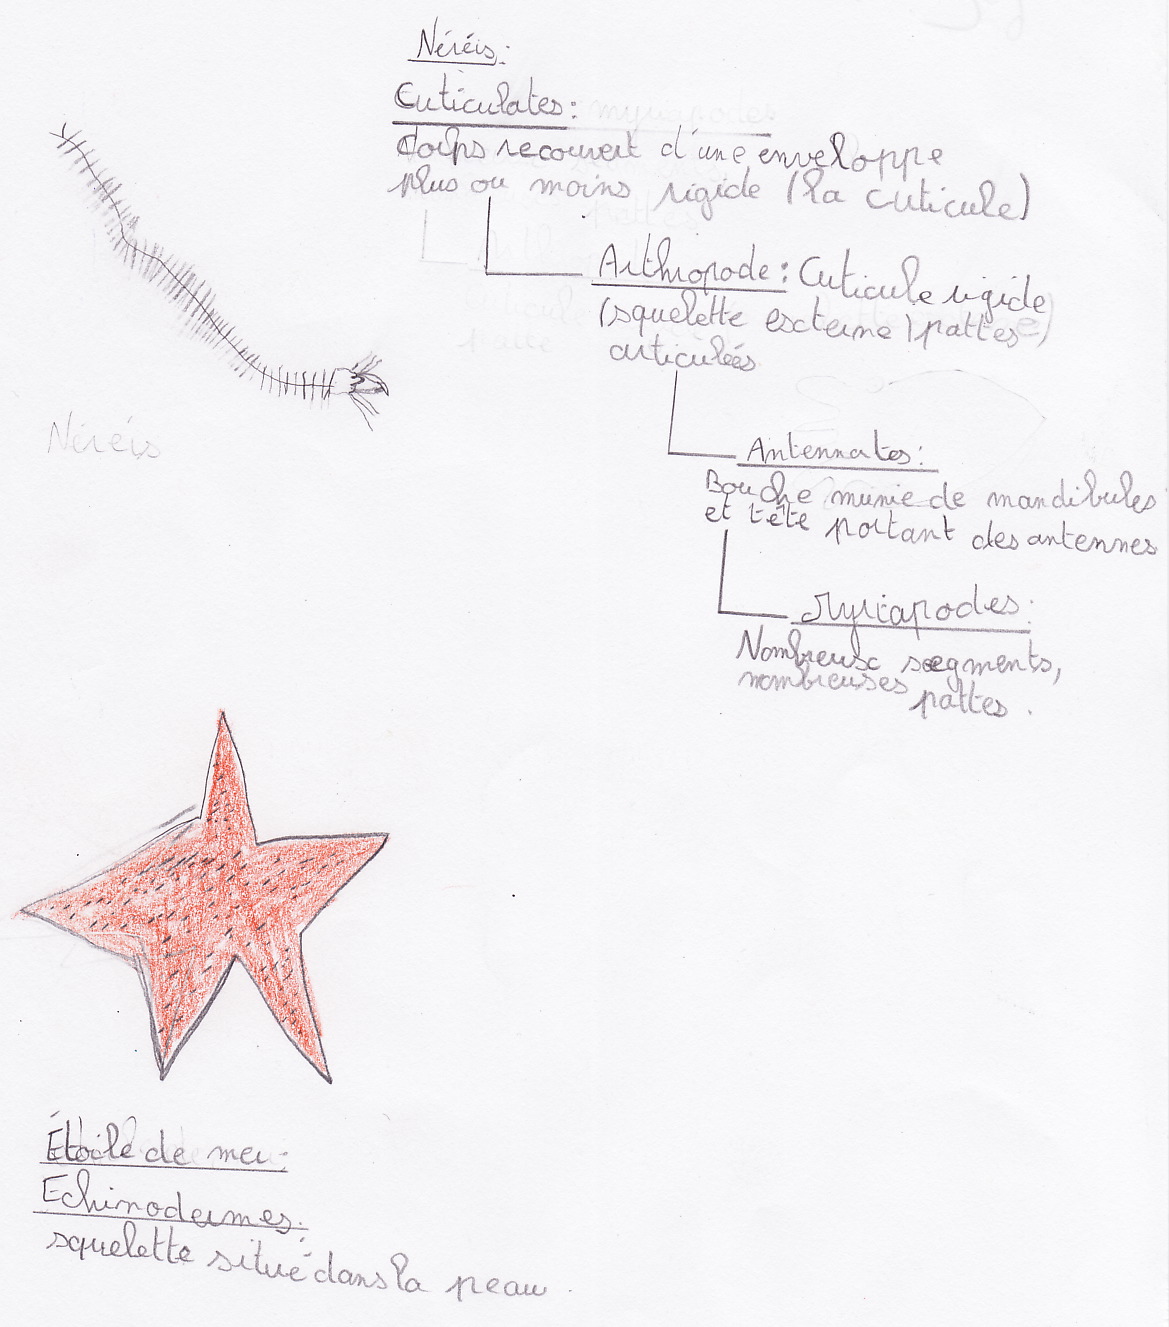 Néréis:
Cuticulates:
Corps recouvert d'une enveloppe
plus ou moins rigide (la cuticule)
Arthropode: Cuticule rigide
(squelette externe) pattes
articulées
Néréis
Antennates:
Bouche munie de mandibules
et tête portant des antennes
Myriapodes:
Nombreux segments,
nombreuses pattes.
Étoile de mer:
Echinodermes:
squelette situé dans la peau.